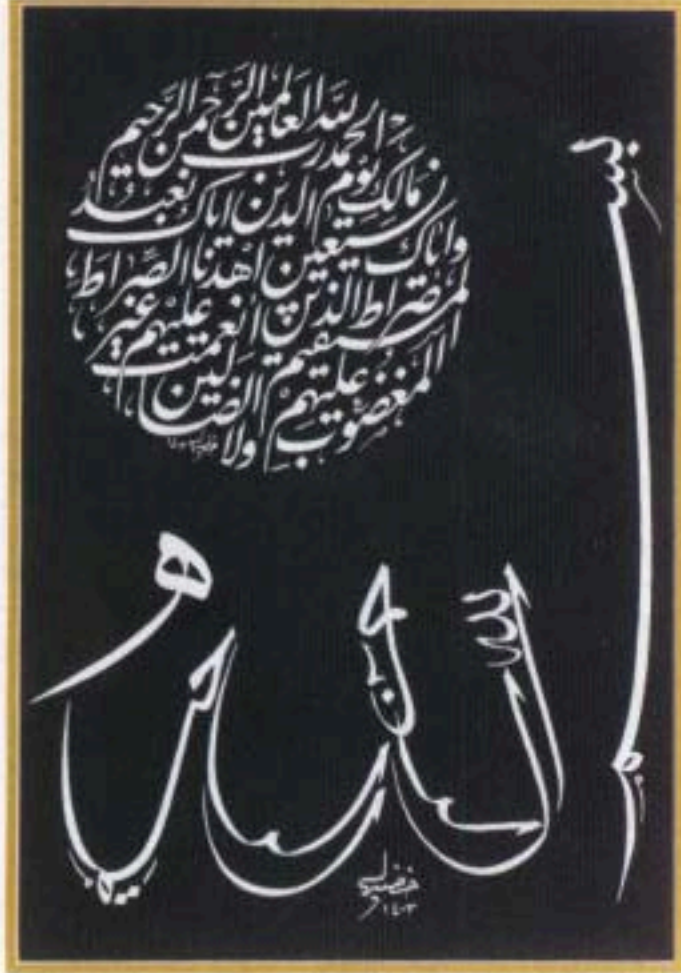 بسم
الحَمْدُ لِلَّهِ رَبِّ العَالمين الرَّحمن الرَّحيم
مَالِكِ يَوْمِ الدين اياك نعبدُ
واياك نستعين اهْدنَا الصِّراطَ
المستقيم صراط الذين انعمت عليهم غير
المغضُوب عليهمْ ولا الضالين
الله الرحمن الرحيم
خضير
١٤٠٣